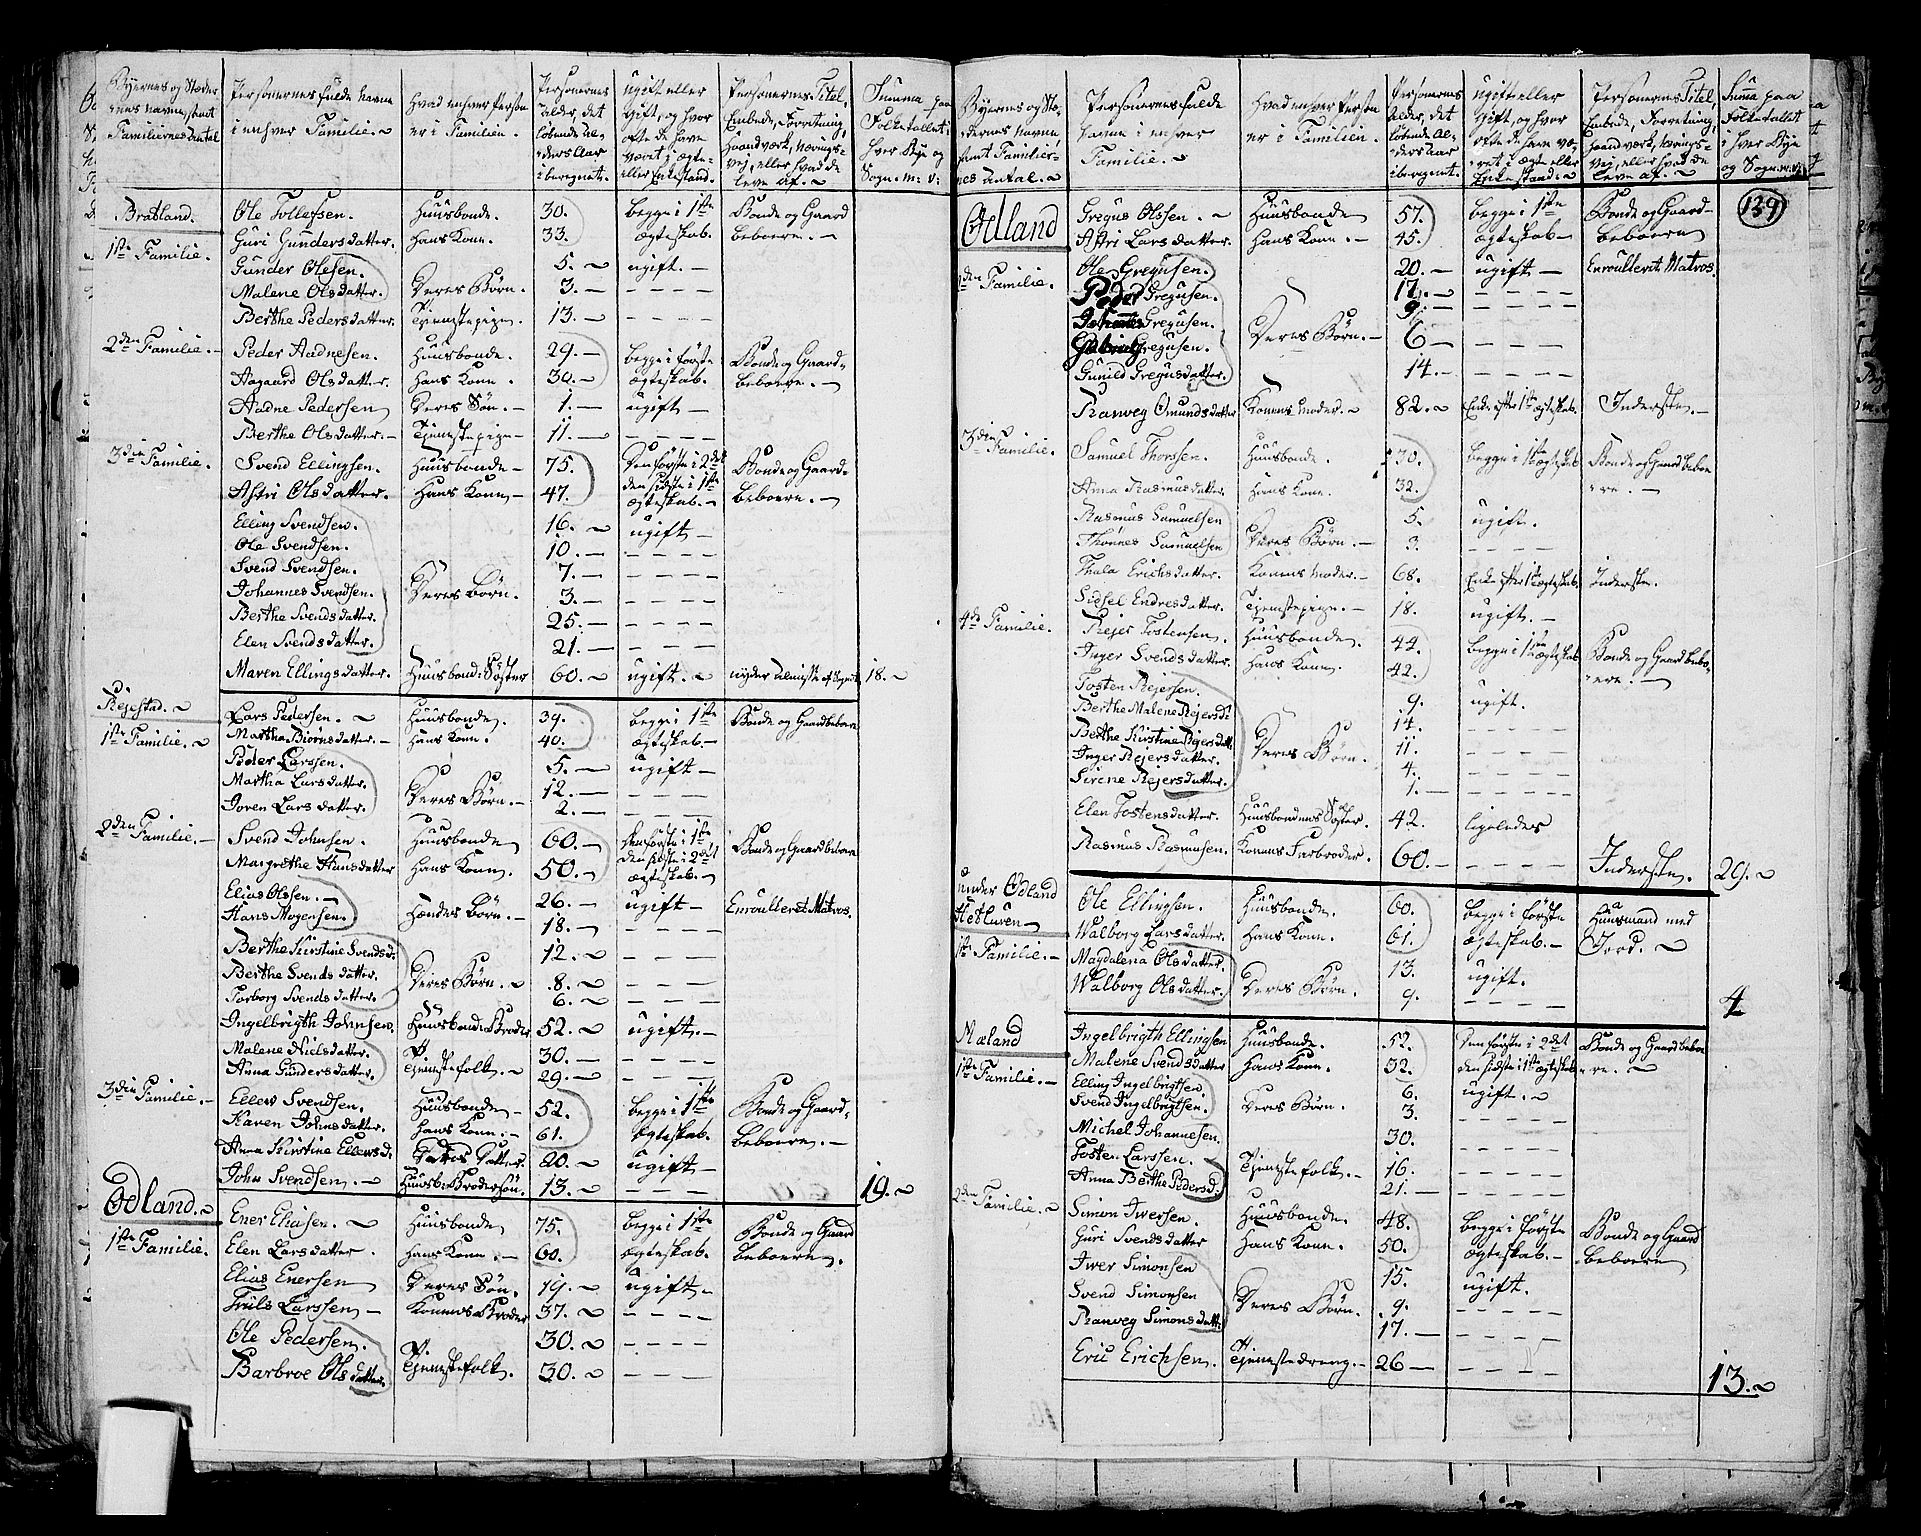 Byernes og Stædernes Navne, samt Familiernes Antal | Personernes fulde Navne i enhver Familie. | Hvad enhver Person er i Familien. | Personernes Alder, det løbende Alders Aar iberegnet. | Ugift eller Gift, og hvor ofte de have været i Ægte- eller Enkestand. | Personernes Titel, Embede, Forretning, Haandværk, Nærings-vej, eller hvad de leve af. | Summa paa Folketallet i hver Bye og Sogn. m: v:
Bratland. | Ole Tollefsen. | Huusbonde. | 30. | begge i 1ste | Bonde og Gaard
Guri Gundersdatter. | Hans Kone. | 33. | Ægteskab. | beboere.
1ste Familie. | Gunder Olesen. | 5. | ugift.
Malene Olsdatter. | Deres Børn. | 3. | — — — —
Berthe Pedersdatter. | Tjenestepige. | 13. | — — — —
2den Familie. | Peder Aadnesen. | Huusbonde. | 29. | begge i første | Bonde og Gaard-
Aagaard Olsdatter. | Hans Kone. | 30. | Ægteskab. | beboere.
Aadne Pedersen | Deres Søn. | 1. | ugift
Berthe Olsdatter. | Tjenestepige | 11. | — — — —
3die Familie. | Svend Ellingsen. | Huusbonde | 75. | Den første i 2det | Bonde og Gaard-
Astri Olsdatter. | Hans Kone | 47. | den sidste i 1ste Ægteskab. | beboere.
Elling Svendsen. | 16. | ugift
Ole Svendsen. | 10. | — — — —
Svend Svendsen. | 7. | — — — —
Johannes Svendsen. | Deres Børn. | 3. | — — — —
Berthe Svendsdatter. | 25. | — — — —
Elen Svendsdatter. | 21. | — — — —
Maren Ellingsdatter. | Huusbond: Søster | 60. | ugift. | nyder Almisse af Sognet | 18.
Rejestad.
Lars Pedersen. | Huusbonde. | 39. | begge i 1ste | Bonde og Gaardbeboere
1ste Familie. | Martha Biørnsdatter. | Hans Kone. | 40. | Ægteskab.
Peder Larssen. | 5. | ugift
Martha Larsdatter. | Deres Børn. | 12. | — — — —
Joren Larsdatter. | 2. | — — — —
2den Familie. | Svend Johnsen. | Huusbonde | 60. | Den første i 1ste | Bonde og Gaardbeboere
Margrethe Hansdatter | Hans Kone. | 50. | den sidste i 2det Ægteskab.
Elias Olssen. | 26. | ugift | Enroulleret Matros.
Hans Mogensen. | Hendes Børn. | 18. | — — — —
Berthe Kirstine Svendsd: | 12. | — — — —
Berthe Svendsdatter. | Deres Børn. | 8. | — — — —
Torborg Svendsdatter. | 6. | — — — —
Ingelbrigth Johnsen. | Huusbond: Broder | 52. | ugift.
Malene Nielsdatter. | 30. | — — — —
Anna Gundersdatter. | Tjenestefolk. | 29. | — — — —
3die Familie. | Ellew Svendsen. | Huusbonde | 52. | begge i 1ste | Bonde og Gaard-
Karen Johnsdatter. | Hans Kone. | 61. | Ægteskab. | beboere.
Anna Kirstine Ellewsd: | Deres Datter. | 20. | ugift
John Svendsen. | Huusb: Brodersøn. | 13. | — — — | 19.
Ødland.
Ener Eliasen. | Huusbonde | 75. | begge i 1ste | Bonde og Gaard
1ste Familie. | Elen Larsdatter. | Hans Kone. | 60. | Ægteskab. | beboere.
Elias Enersen | Deres Søn. | 19. | ugift
Truls Larssen | Konens Broder | 37. | — — — —
Ole Pedersen. | 30. | — — — —
Barbroe Olsdatter. | Tjenestefolk. | 30. | — — — —
Byernes og Stædernes Navne samt Familiernes Antal. | Personernes fulde Navne i enhver Familie. | Hvad enhver Person er i Familien. | Personernes Alder, det løbende Alders Aar iberegnet. | Ugift eller Gift, og hvor ofte de have været i Ægte- eller Enkestand. | Personernes Titel, Embede, Forretning, Haandværk, Nærings-vej, eller hvad de leve af. | Summa paa Folketallet i hver Bye og Sogn. m: v:
139
Ødland | Gregus Olssen. | Huusbonde | 57. | begge i 1ste | Bonde og Gaard-
Astri Larsdatter. | Hans Kone. | 45. | Ægteskab | beboere
2den Familie. | Ole Gregusen. | 20. | ugift | Enroullerit Matros.
Peder Gregusen. | 17. | — — — —
Johannes Gregusen. | 9. | — — — —
Gabriel Gregusen. | Deres Børn. | 6 | — — — —
Gunild Gregusdatter. | 14. | — — — —
Ranveg Omundsdatter | Konens Moder. | 82. | Enke efter 1ste Ægteskab. | Inderste.
3die Familie. | Samuel Thorssen. | Huusbonde. | 30. | begge i 1ste Ægteskab | Bonde og Gaardbeboe
Anna Rasmusdatter. | Hans Kone. | 32. | re.
Rasmus Samuelsen | 5. | ugift.
Thønnes Samuelsen | Deres Børn. | 3. | — — — —
Thala Erichsdatter. | Konens Moder. | 68. | Enke efter 1ste Ægteskab. | Inderste.
Sidsel Endresdatter. | Tjenestepige. | 18. | ugift.
4de Familie. | Rejer Tostensen. | Huusbonde. | 44. | begge i 1ste Ægteskab | Bonde og Gaardbebo-
Inger Svendsdatter. | Hans Kone. | 42. | ere.
Tosten Rejersen. | 9. | ugift.
Berthe Malene Rejersd: | 14. | — — — —
Berthe Kirstine Rejersdatt: | Deres Børn. | 11. | — — — —
Inger Rejersdatter. | 4. | — — — —
Sirene Rejersdatter. | 1. | — — — —
Elen Tostensdatter. | Huusbondens Søster. | 42. | ligeledes
Rasmus Rasmusen. | Konens Farbroder. | 60. | — — — — | Inderste. | 29.
under Ødland Hetluren
Ole Ellingsen. | Huusbonde. | 60. | begge i første | Huusmand med
Walborg Larsdatter. | Hans Kone. | 61. | Ægteskab. | Jord.
1ste Familie. | Magdalena Olsdatter. | 13. | ugift.
Walborg Olsdatter. | Deres Børn. | 9. | — — — — | 4
Mæland | Ingelbrigth Ellingsen | Huusbonde. | 52. | Den første i 2det | Bonde og Gaardbeboe
Malene Svendsdatter | Hans Kone. | 32. | den sidste i 1ste Ægteskab | re.
1ste Familie. | Elling Ingelbrigtsen | 6. | ugift.
Svend Ingelbrigtsen. | Deres Børn. | 3. | — — — —
Michel Johannesen. | 30. | — — — —
Tosten Larssen. | Tjenestefolk. | 16. | — — — —
Anna Berthe Pedersd: | 21. | — — — —
2den Familie. | Simon Iwersen. | Huusbonde. | 48. | begge i første | Bonde og Gaard
Guri Svendsdatter | Hans Kone. | 50. | Ægteskab. | beboere
Iwer Simonsen | 15. | ugift.
Svend Simonsen | Deres Børn. | 9. | — — — —
Ranveg Simonsdatt: | 17. | — — — —
Eric Erichsen. | Tjenestedreng. | 26 | — — — | 13.